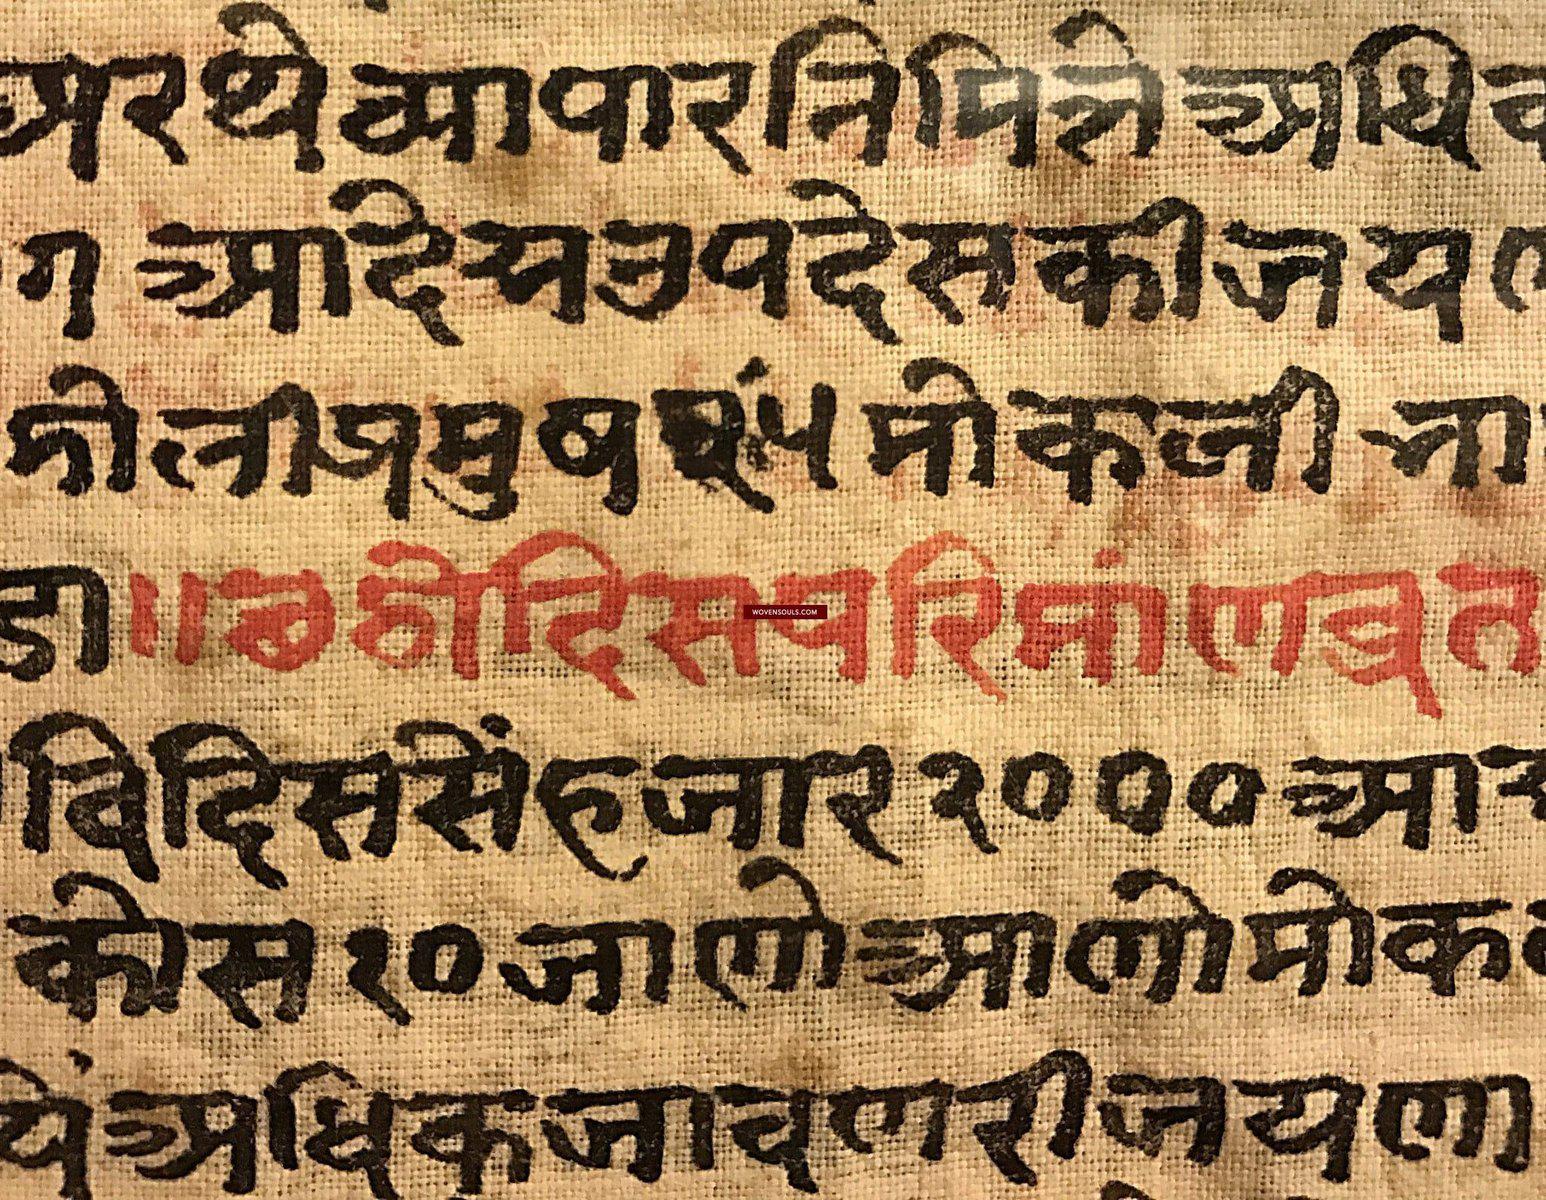 अरथे आपारनिमित्ते अधिक
ग आदेयउपदेसकीजयण
कोत्रीजमुष मोकली ना
डा ॥छठोदिसपरिमांणव्रत
विदिससेंहजार२००० आ
कोस१०जाणोआणोमोक
यें अधिकजावणरीजयणा
WOVENSOULS.COM